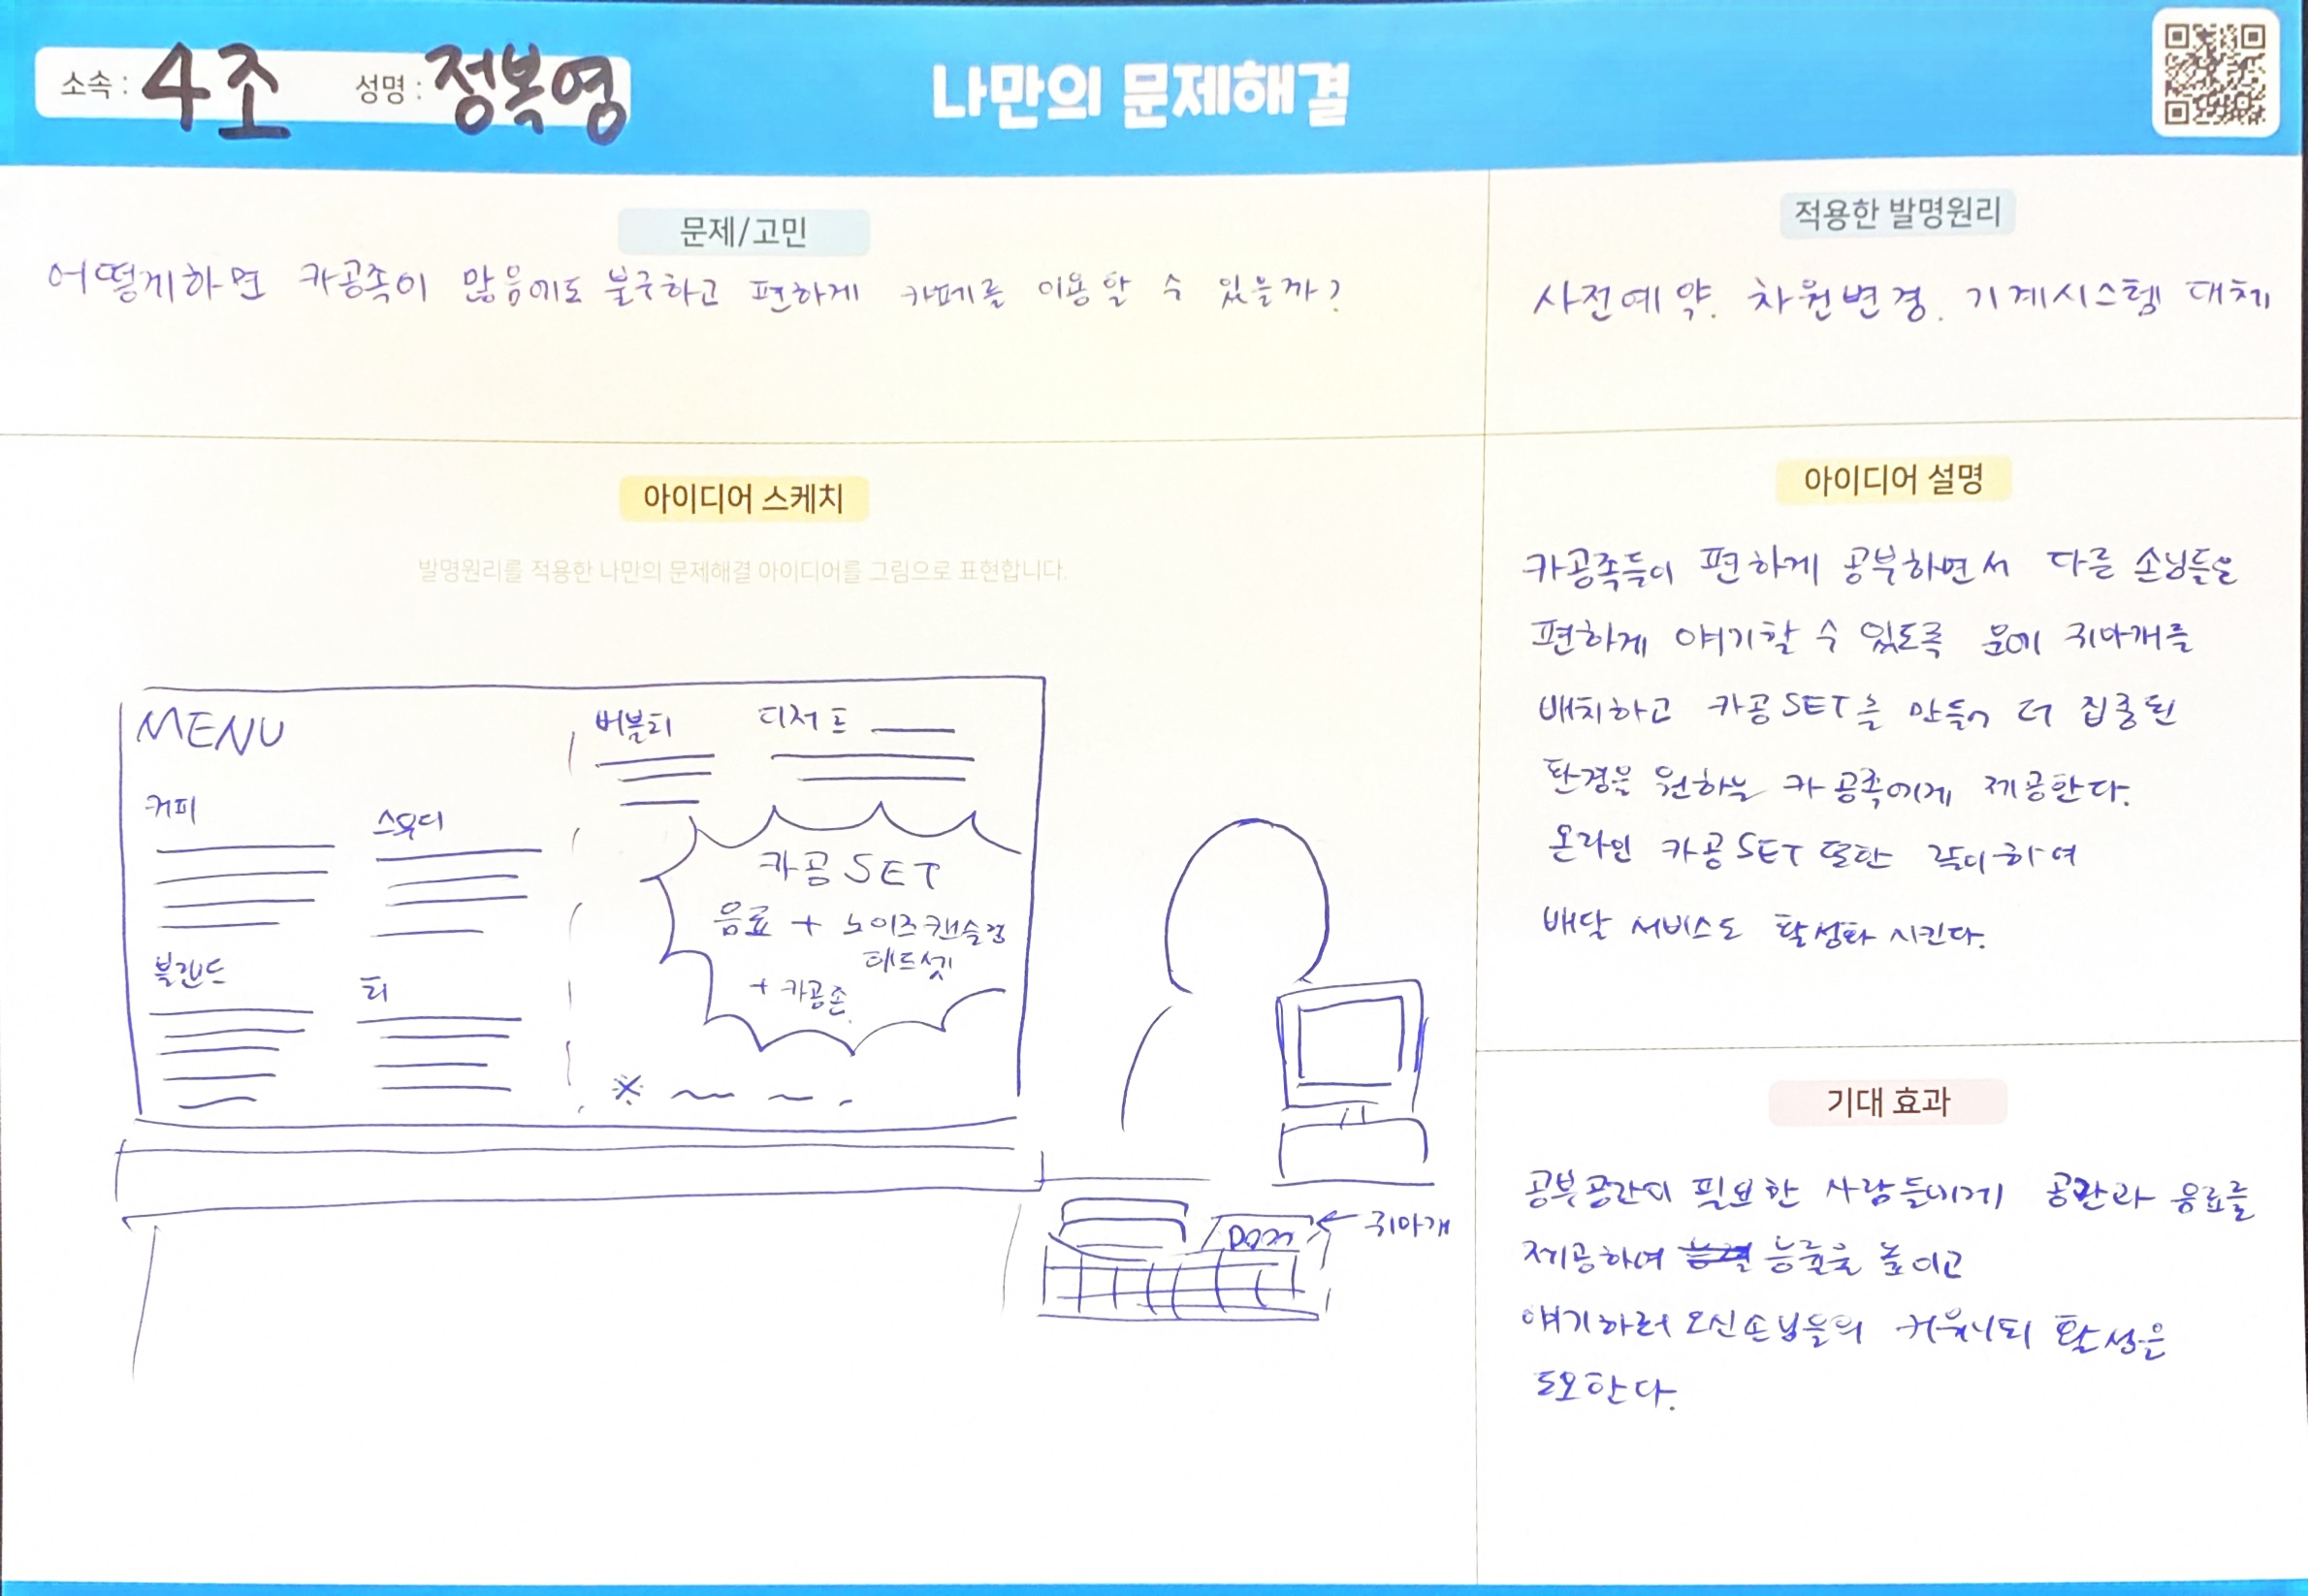 소속 : 4조 성명 : 정복영
나만의 문제해결
문제/고민
어떻게하면 카공족이 많음에도 불구하고 편하게 카페를 이용할 수 있을까?
적용한 발명원리
사전예약. 차원변경. 기계시스템 대체
아이디어 스케치
발명원리를 적용한 나만의 문제해결 아이디어를 그림으로 표현합니다.
MENU
커피
스무디
블랜드
티
버블티
디저트
카공 SET
음료 + 노이즈캔슬링
헤드셋
+ 카공존.
귀마개
아이디어 설명
카공족들이 편하게 공부하면서 다른 손님들은
편하게 얘기할 수 있도록 문에 귀마개를
배치하고 카공SET을 만들어 더 집중된
환경을 원하는 카공족에게 제공한다.
온라인 카공SET 또한 하여
배달 서비스도 활성화 시킨다.
기대 효과
공부공간이 필요한 사람들에게 공간과 음료를
제공하며 능률을 높이고
얘기하러 오신손님들의 커뮤니티 활성은
도모한다.